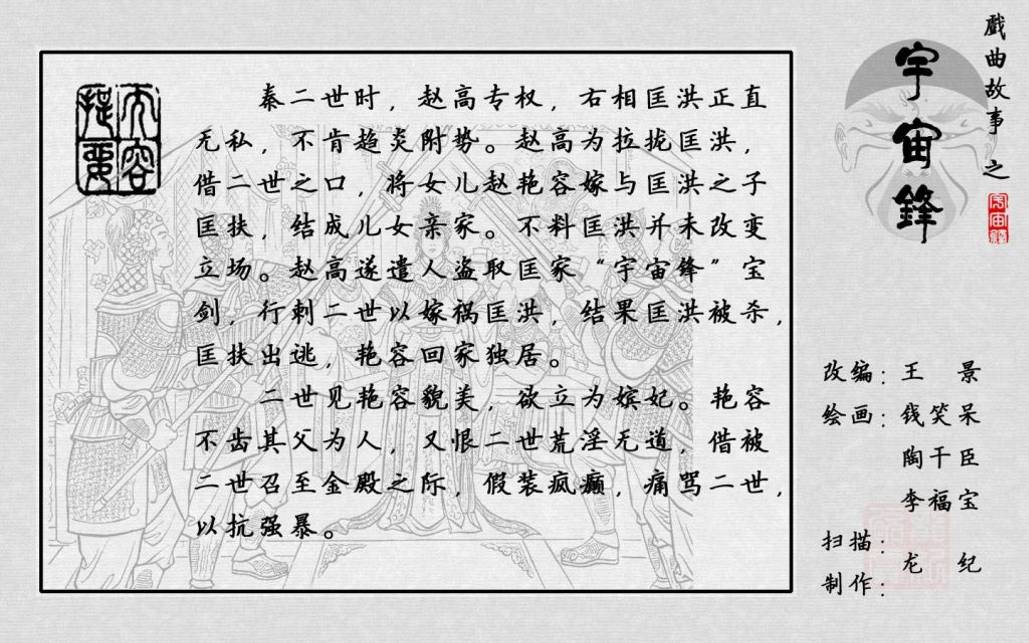 戲曲故事之
宇宙鋒
宇宙鋒
内容提要
秦二世时，赵高专权，右相匡洪正直
无私，不肯趋炎附势。赵高为拉拢匡洪，
借二世之口，将女儿赵艳容嫁与匡洪之子
匡扶，结成儿女亲家。不料匡洪并未改变
立场。赵高遂遣人盗取匡家“宇宙锋”宝
剑，行刺二世以嫁祸匡洪，结果匡洪被杀，
匡扶出逃，艳容回家独居。
二世见艳容貌美，欲立为嫔妃。艳容
不齿其父为人，又恨二世荒淫无道，借被
二世召至金殿之际，假装疯癫，痛骂二世，
以抗强暴。
改编：王景
绘画：钱笑呆
陶干臣
李福宝
扫描：
龙纪
制作：